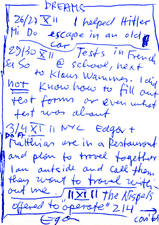 DREAMS
26/27 XII I helped Hitler
Mi Do escape in an old
car
29/30 XII Tests in French
Sa So @ school, next
to Klaus Wammer. I did
NOT know how to fill out
test forms or even what
test was about
3/4 XII NYC Edgar +
Matthias are in a Restaurant
and plan to travel together
I am outside and call them
they want to travel with-
out me // XII The Nispels
offered to operate 2/4
Ego